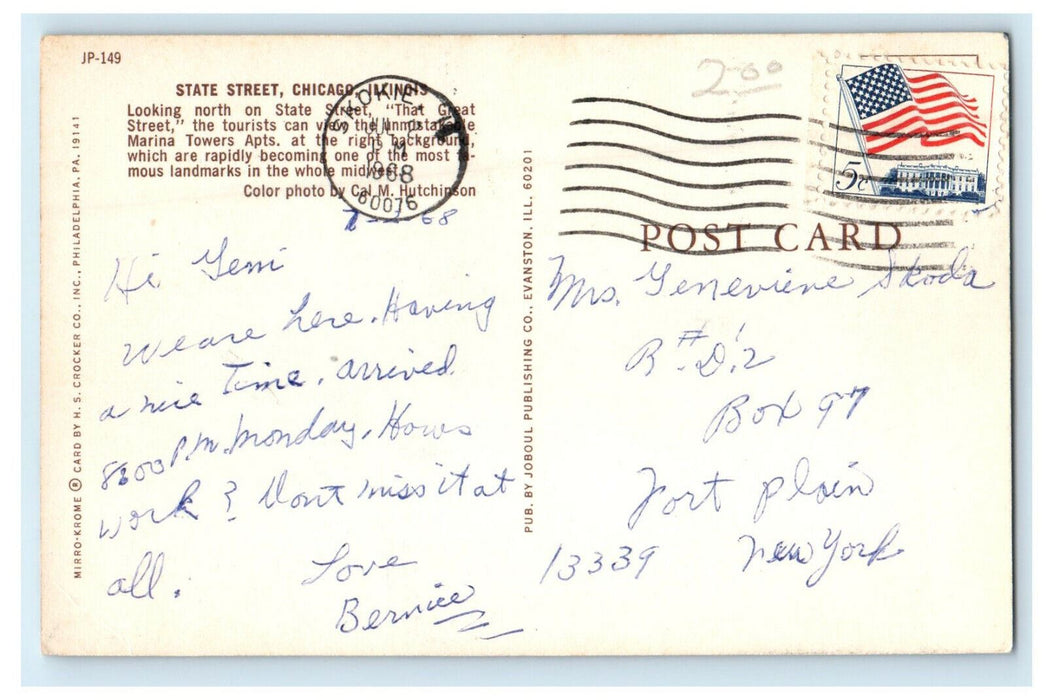 JP-149
STATE STREET, CHICAGO, ILLINOIS
Looking north on State Street, "That Great
Street," the tourists can view the unmistakable
Marina Towers Apts. at the right background,
which are rapidly becoming one of the most fa-
mous landmarks in the whole midwest.
Color photo by Cal M. Hutchinson
SKOKIE
1968
60076
2-00
5c
POST CARD
68
Hi Geni
We are here. Having
a nice time. arrived
8:00 P.M. Monday. Hows
work? Dont miss it at
all.
Love
Bernice
Mrs. Genevieve Skoda
R.#D.'2
Box 97
Fort Plain
13339 New York
MIRRO-KROME ® CARD BY H. S. CROCKER CO., INC., PHILADELPHIA, PA. 19141
PUB. BY JOBOUL PUBLISHING CO., EVANSTON, ILL. 60201